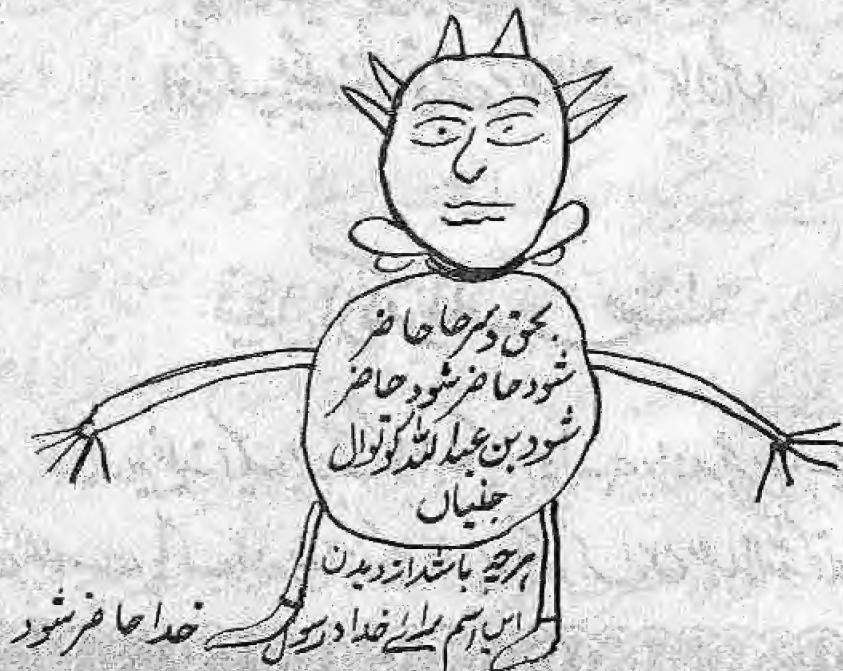 بحق دہرجا حاضر
شود حاضر شود حاضر
شود بن عبداللہ کوتوال
جنیاں
ہرچہ باشد از دیدن
این اسم برائے خدا و رسول
خدا حاضر شود